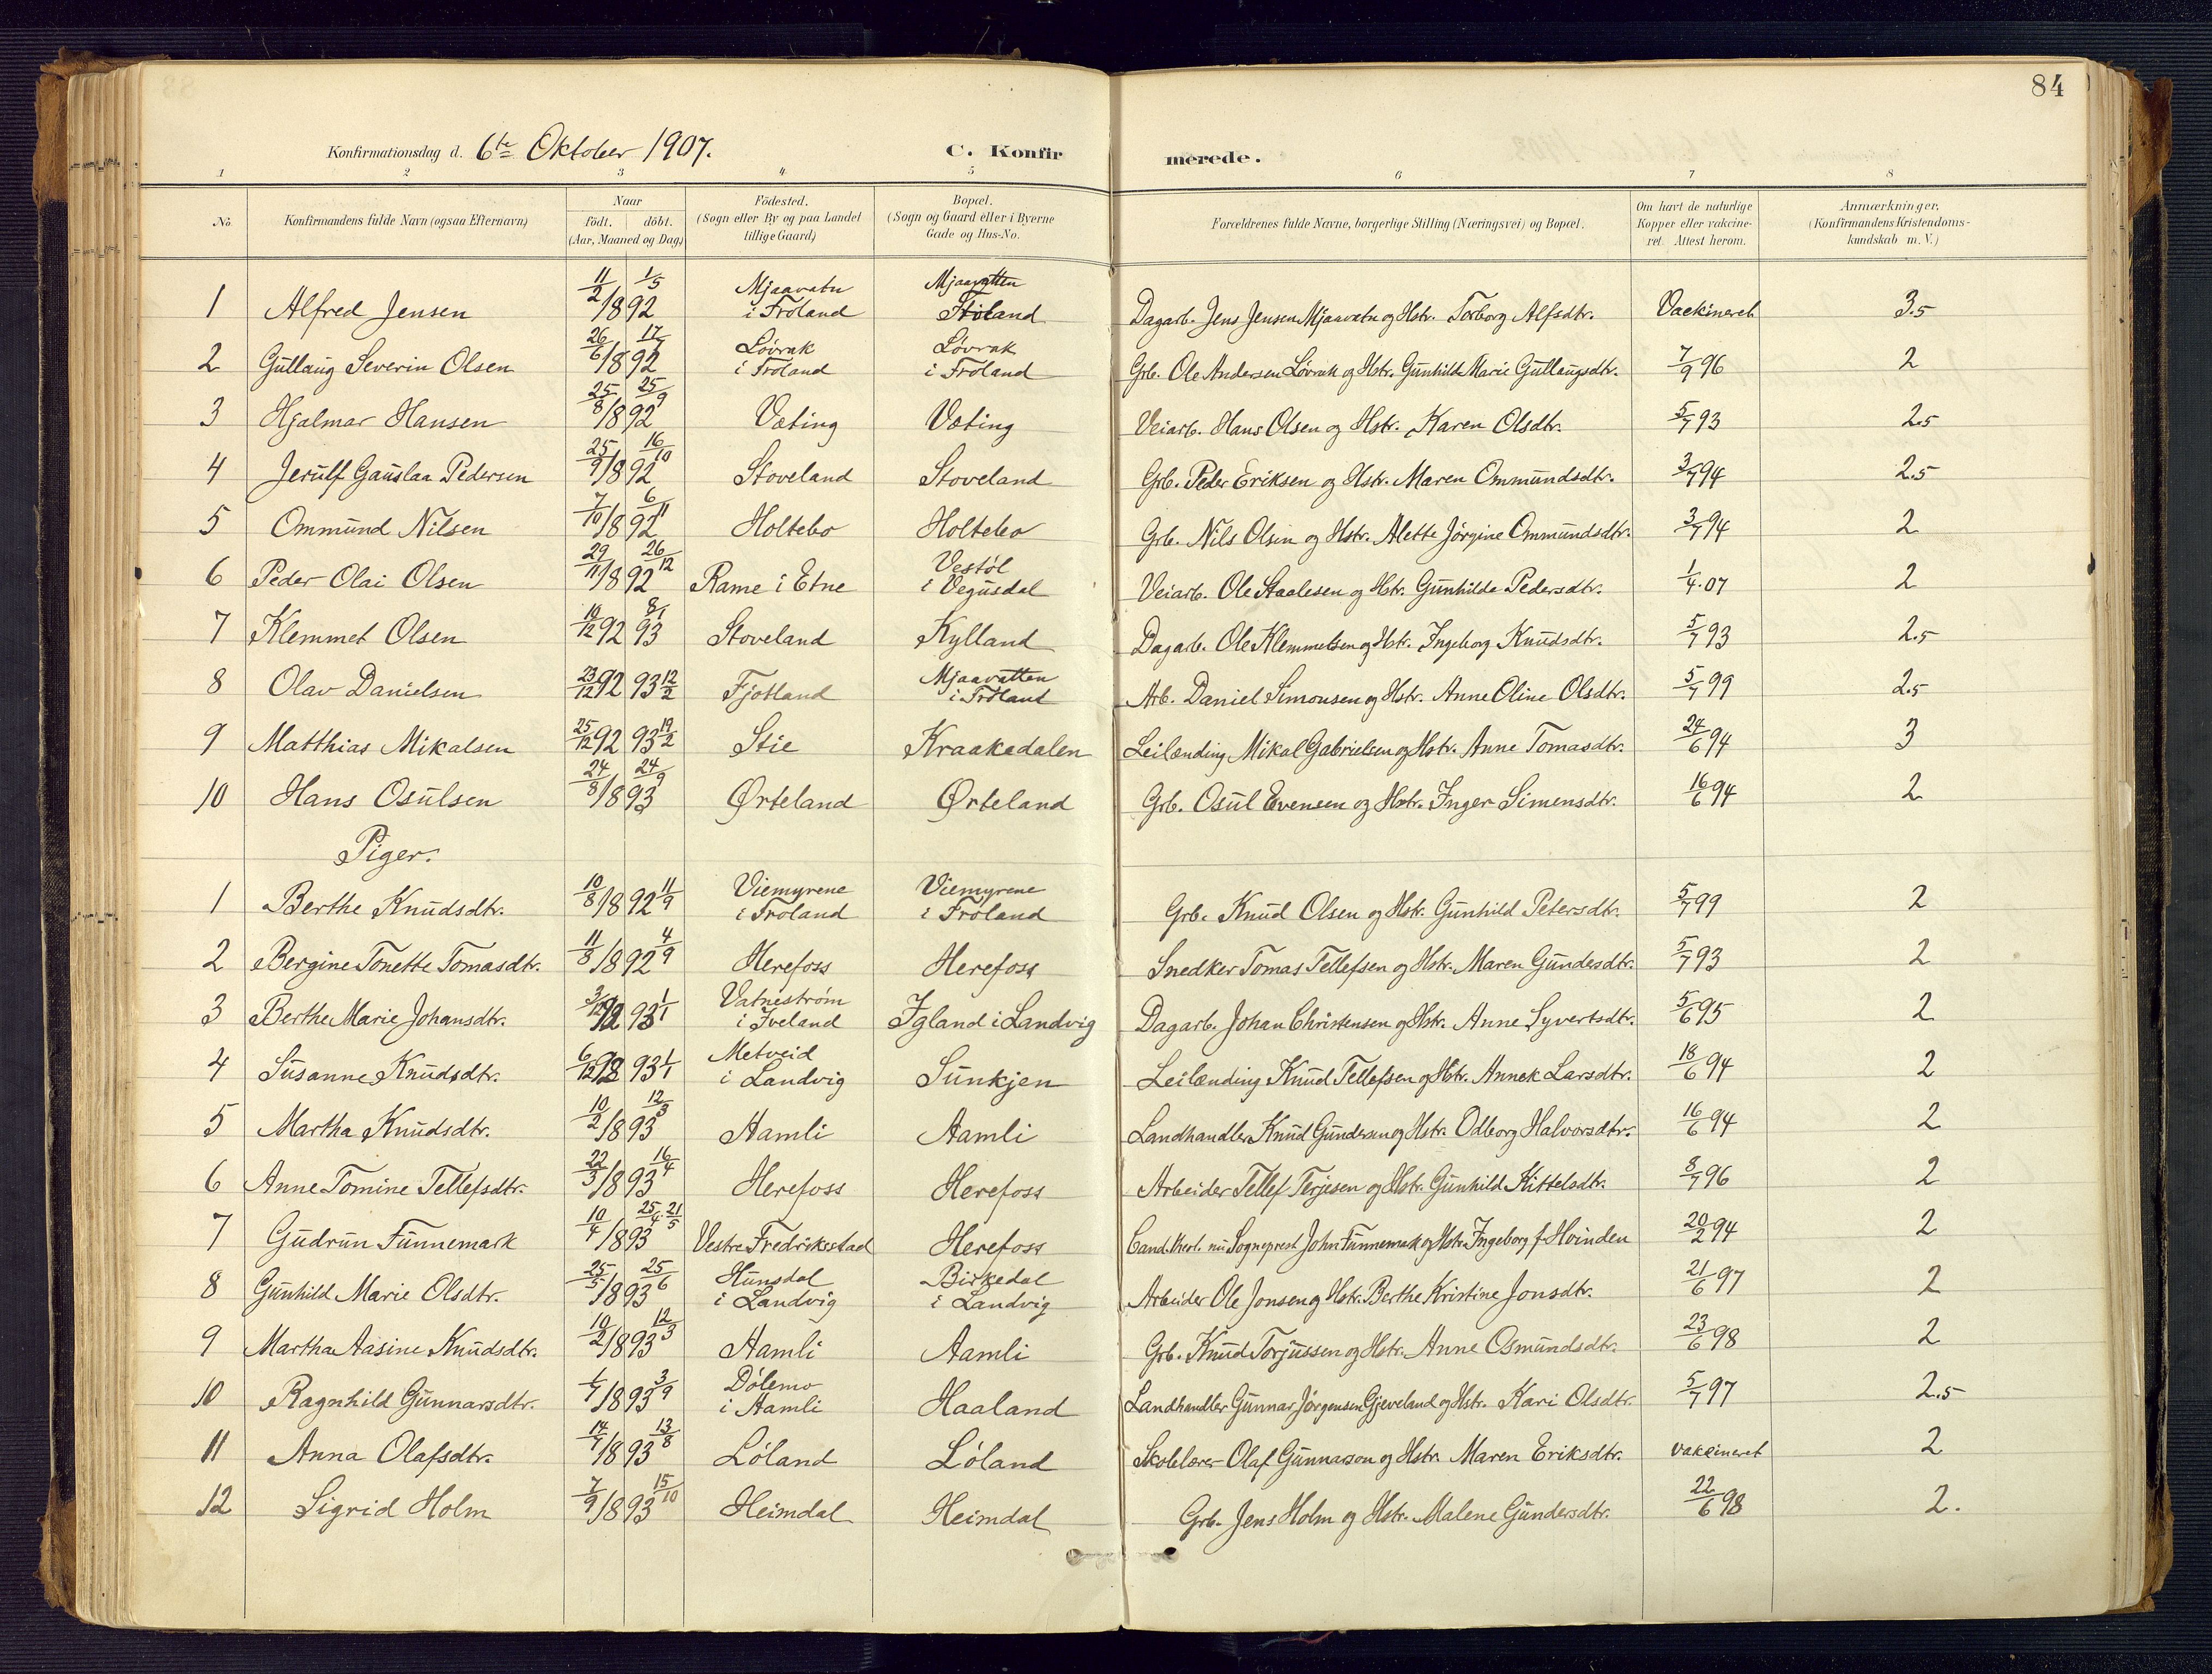 84
Konfirmationsdag d. 6te Oktober 1907. C. Konfirmerede.
1 2 3 4 5 6 7 8
No. Konfirmandens fulde Navn (ogsaa Efternavn) Naar født. døbt. (Aar, Maaned og Dag) Fødested. (Sogn eller By og paa Landet tillige Gaard) Bopæl. (Sogn og Gaard eller i Byerne Gade og Hus-No. Forældrenes fulde Navne, borgerlige Stilling (Næringsvei) og Bopæl. Om havt de naturlige Kopper eller vakcineret. Attest herom. Anmærkninger. (Konfirmandens Kristendomskundskab m. V.)
1 Alfred Jensen 11/2 1/5 1892 Mjaavatn i Froland Mjaavatten Froland Dagarb. Jens Jensen Mjaavatn og Hstr. Torborg Alfsdtr. Vackineret 3.5
2 Gullaug Severin Olsen 26/6 17/7 1892 Løvrak i Froland Løvrak i Froland Grb. Ole Andersen Løvrak og Hstr. Gunhild Marie Gullaugsdtr. 7/9 96 2
3 Hjalmar Hansen 25/8 25/9 1892 Væting Væting Veiarb. Hans Olsen og Hstr. Karen Olsdtr. 5/7 93 2.5
4 Jerulf Gauslaa Pedersen 25/9 16/10 1892 Stoveland Stoveland Grb. Peder Eriksen og Hstr. Maren Ommundsdtr. 3/7 94 2.5
5 Ommund Nilsen 7/10 6/11 1892 Holtebo Holtebo Grb. Nils Olsen og Hstr. Alette Jørgine Ommundsdtr. 3/7 94 2
6 Peder Olai Olsen 29/11 26/12 1892 Rame i Etne Vestøl i Vegusdal Veiarb. Ole Staalesen og Hstr. Gunhilde Pedersdtr. 1/4.07 2
7 Klemmet Olsen 10/12 92 8/1 93 Stoveland Kylland Dagarb. Ole Klemmetsen og Hstr. Ingeborg Knudsdtr. 5/7 93 2.5
8 Olav Danielsen 23/12 92 93 12/2 Fjotland Mjaavatten i Froland Arb. Daniel Simonsen og Hstr. Anne Oline Olsdtr. 5/7 99 2.5
9 Matthias Mikalsen 25/12 92 93 19/2 Stie Kraakedalen Leilænding Mikal Gabrielsen og Hstr. Anne Tomasdtr. 24/6 94 3
10 Hans Osulsen 24/8 24/9 1893 Ørteland Ørteland Grb. Osul Evensen og Hstr. Inger Simensdtr. 16/6 94 2
Piger.
1 Berthe Knudsdtr. 10/8 1892 11/9 Viemyrene i Froland Viemyrene i Froland Grb. Knud Olsen og Hstr. Gunhild Petersdtr. 5/7 99 2
2 Bergine Tonette Tomasdtr. 11/8 1892 4/9 Herefoss Herefoss Snedker Tomas Tellefsen og Hstr. Maren Gundesdtr. 5/7 93 2
3 Berthe Marie Johansdtr. 3/12 92 93 1/1 Vatnestrøm i Iveland Igland i Landvig Dagarb. Johan Christensen og Hstr. Anne Syvertsdtr. 5/6 95 2
4 Susanne Knudsdtr. 6/12 92 93 1/1 Metveid i Landvig Sunkjen Leilænding Knud Tellefsen og Hstr. Annek Larsdtr. 18/6 94 2
5 Martha Knudsdtr. 10/2 12/3 1893 Aamli Aamli Landhandler Knud Gundersen og Hstr. Odborg Halvorsdtr. 16/6 94 2
6 Anne Tomine Tellefsdtr. 22/3 16/4 1893 Herefoss Herefoss Arbeider Tellef Terjesen og Hstr. Gunhild Kittelsdtr. 8/7 96 2
7 Gudrun Funnemark 10/4 25/4. 21/5 1893 Vestre Fredriksstad Herefoss Cand. theol. nu Sogneprest John Funnemark og Hstr. Ingeborg f. Hvinden 20/2 94 2
8 Gunhild Marie Olsdtr. 25/5 25/6 1893 Hunsdal i Landvig Birkedal i Landvig Arbeider Ole Jonsen og Hstr. Berthe Kristine Jonsdtr. 21/6 97 2
9 Martha Aasine Knudsdtr. 10/2 12/3 1893 Aamli Aamli Grb. Knud Torjussen og Hstr. Anne Osmundsdtr. 23/6 98 2
10 Ragnhild Gunnarsdtr. 1/7 3/9 1893 Dølemo i Aamli Haaland Landhandler Gunnar Jørgensen Gjeveland og Hstr. Kari Olsdtr. 5/7 97 2.5
11 Anna Olafsdtr. 14/7 13/8 1893 Løland Løland Skolelærer Olaf Gunnarson og Hstr. Maren Eriksdtr. vakcineret 2
12 Sigrid Holm 7/9 15/10 1893 Heimdal Heimdal Grb. Jens Holm og Hstr. Malene Gundersdtr. 22/6 98 2.